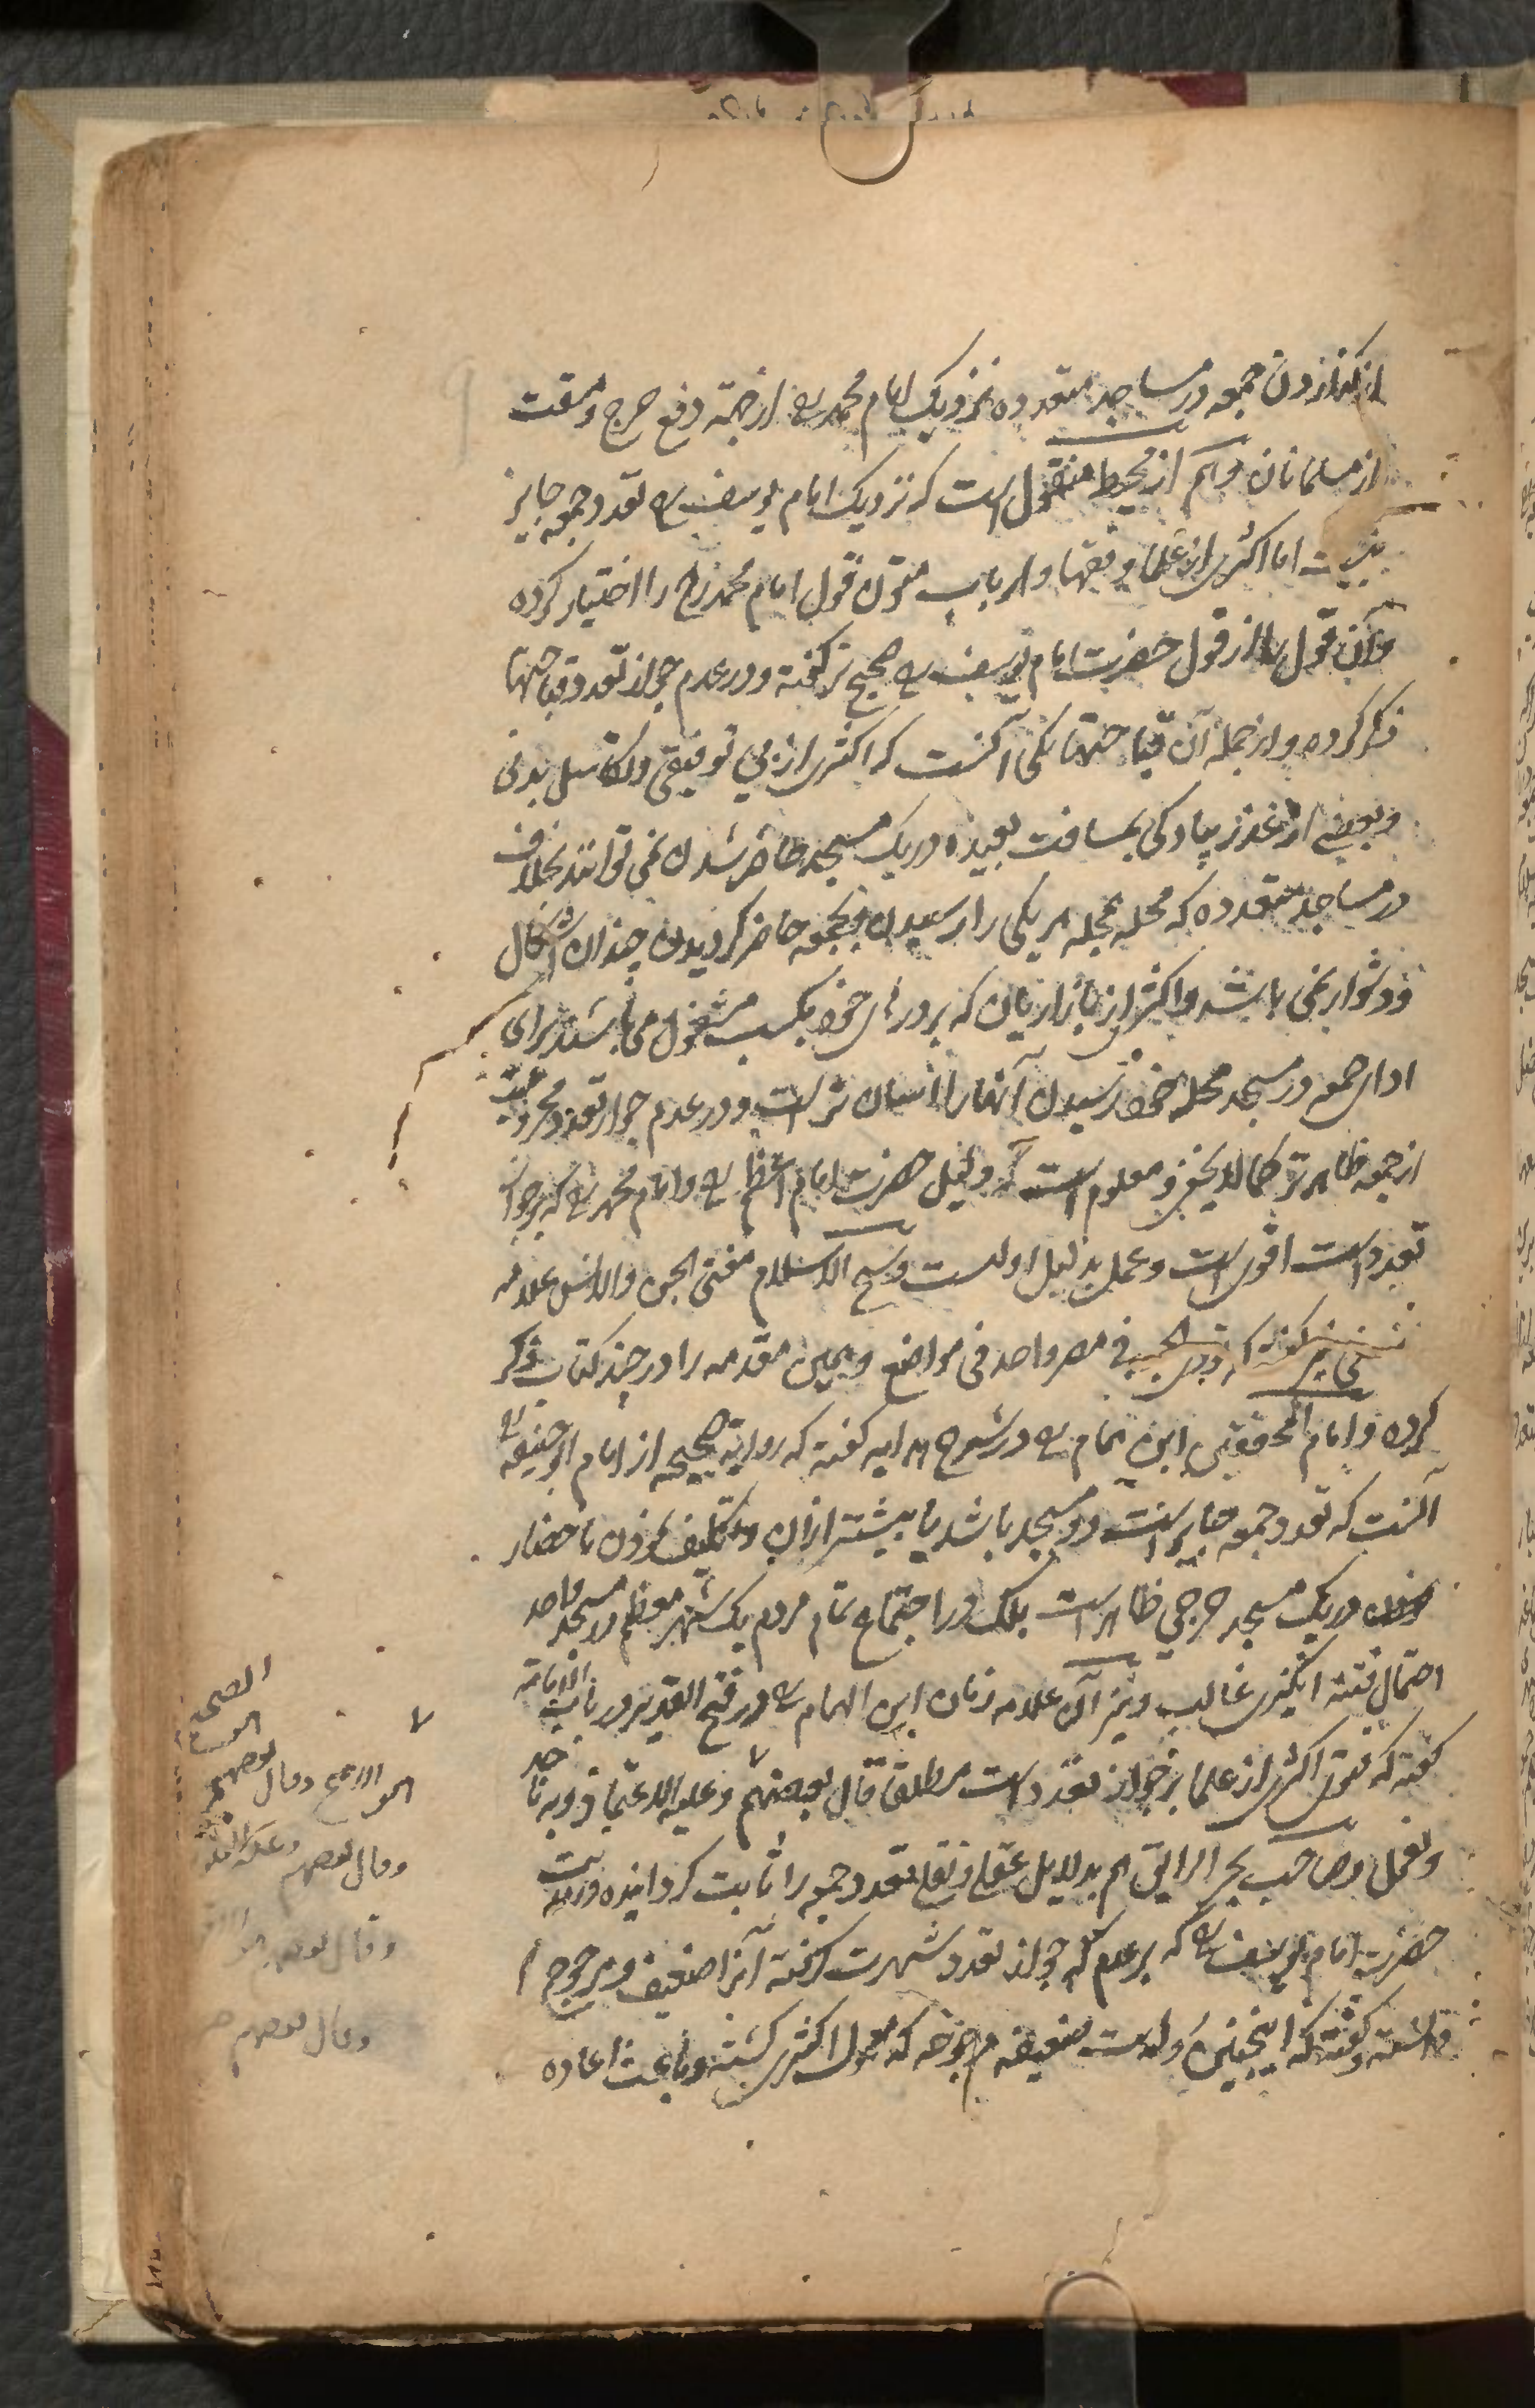 از گذاردن جمعه در مساجد متعدده نزدیک امام محمد رح از جهة دفع حرج و مشقت
از مسلمانان و هم از محیط منقول است که نزدیک امام یوسف رح تعدد جمعه جایز
نیست اما اکثری از علما و فقها و ارباب متون قول امام محمد رح را اختیار کرده
و آن قول را از قول حضرت امام یوسف رح صحیح تر گفته و در عدم جواز تعدد قباحتها
ذکر کرده و از جمله آن قباحتها یکی آنست که اکثری از بی توفیقی و تکاسل بدنی
و بعضی از عذر پیادگی بمسافت بعیده در یک مسجد حاضر شدن نمی توانند بخلاف
در مساجد متعدده که محله بمحله هر یکی را رسیدن و بجمعه حاضر گردیدن چندان اشکال
و دشوار نمی باشد و اکثر از بازاریان که بر در خود بکسب مشغول می باشند برای
ادای جمعه در مسجد محله خود رسیدن آنها را آسان تر است و در عدم جواز تعدد محرومیت
از جمعه ظاهر تر کما لا یخفی و معلوم است که دلیل حضرت امام اعظم رح و امام محمد رح که بر جواز
تعدد است اقوی است و عمل بدلیل اولیست و شیخ الاسلام مفتی الجن والانس علامه
نسفی گفته که تؤدی الجمعة فی مصر واحد فی مواضع و همین مقدمه را در چند کتاب ذکر
کرده و امام المحققین ابن همام رح در شرح هدایه گفته که روایة صحیحه از امام ابو حنیفه رح
آنست که تعدد جمعه جایز است دو مسجد باشد یا بیشتر ازان و تکلیف نمودن باحضار
در یک مسجد حرجی ظاهر است بلک در اجتماع تمام مردم یک شهر معظم در مسجد واحد
احتمال فتنه انگیزی غالب و نیز آن علامه زمان ابن الهمام رح در فتح القدیر در باب الامامة
گفته که فتوی اکثری از علما بر جواز تعدد است مطلقا قال بعضهم وعلیه الاعتماد وبه ناخذ
ونعمل و صاحب بحر الرایق هم بدلایل عقلی و نقلی تعدد جمعه را ثابت گردانیده و روایت
حضرت امام یوسف رح که بر عدم جواز تعدد شهرت گرفته آنرا ضعیف و مرجوح
دانسته و گفته که اینچنین ضعیفه مرجوحه که معمول اکثری گشته و باعث اعاده
الصحیح
هو الاصح وقال بعضهم
وقال بعضهم وعلیه الفتوی
وقال بعضهم
وقال بعضهم